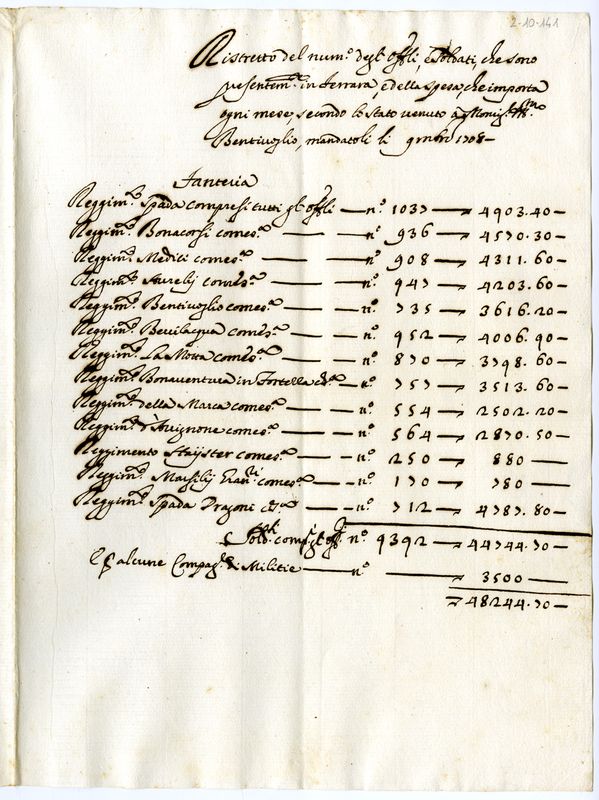 2-10-141
Ristretto del num.o degl' Offli, e Soldati, che sono
presentem.te in Ferrara, e della spesa, che importa
ogni mese, secondo lo Stato venuto a Monsig.r
Bentivoglio, mandatoli li 9mbre 1708
Fanteria
Reggim.to Spada compresi tutti gl' Offli — n.o 1037 — 4903.40 —
Reggim.to Bonacorsi come s.a — n.o 936 — 4570.30 —
Reggim.to Medici come s.a — n.o 908 — 4311.60 —
Reggim.to Aurelij come s.a — n.o 947 — 4203.60 —
Reggim.to Bentivoglio come s.a — n.o 735 — 3616.20 —
Reggim.to Bevilaqua come s.a — n.o 952 — 4006.90 —
Reggim.to La Motta come s.a — n.o 870 — 3798.60 —
Reggim.to Bonaventura in Fortezza — n.o 757 — 3513.60 —
Reggim.to della Marca come s.a — n.o 554 — 2502.20 —
Reggim.to d'Avignone come s.a — n.o 564 — 2870.50 —
Reggimento Stayster come s.a — n.o 250 — 880 —
Reggim.to Marsilij come s.a — n.o 170 — 780 —
Reggim.to Spada Dragoni — n.o 712 — 4787.80 —
Sold.ti comp.i gl' Offli n.o 9392 — 44744.70 —
E p alcune Compag.e di Militie — n.o — 3500 —
48244.70 —